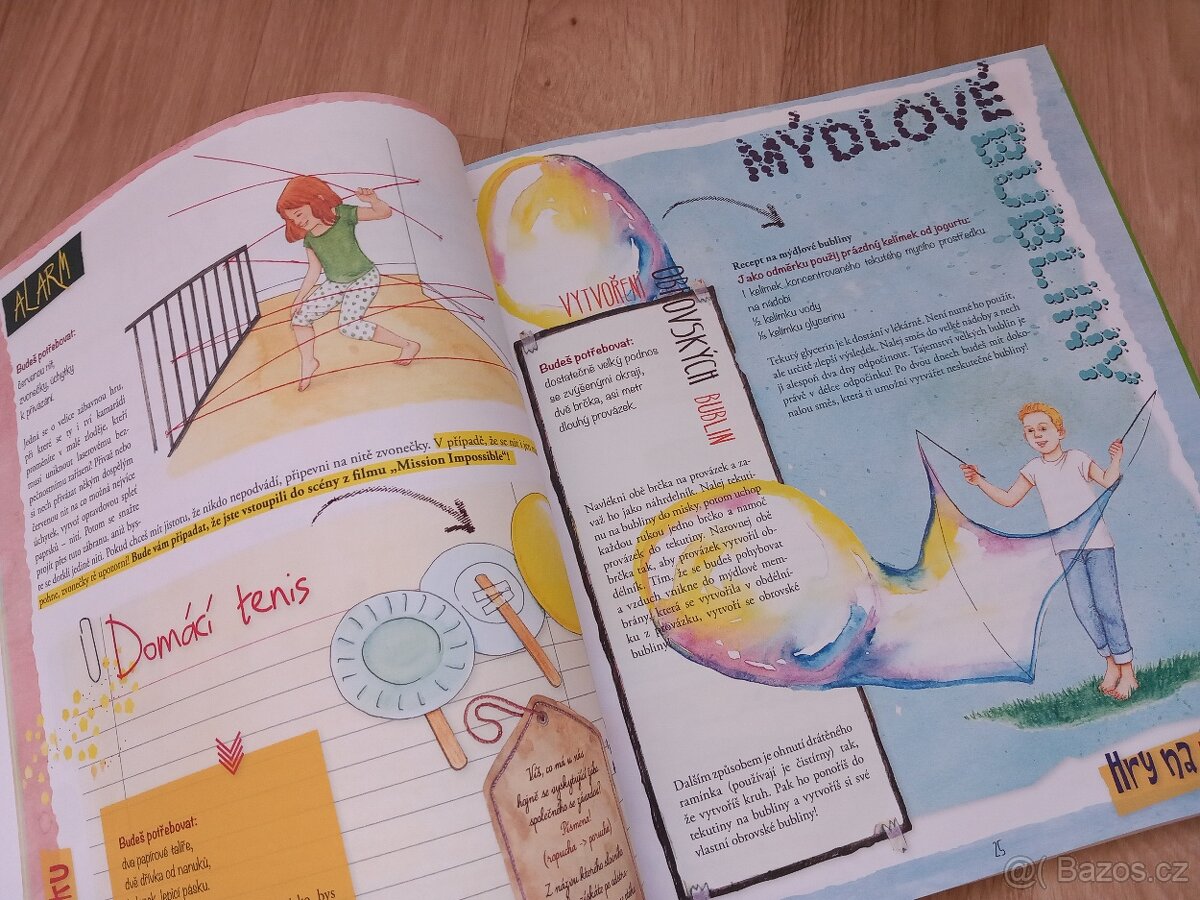 ALARM
Budeš potřebovat:
červenou nit,
zvonečky, úchytky
k přivázání.
Jedná se o velice zábavnou hru,
při které se ty i tví kamarádi
proměníte v malé zloděje, kteří
musí uniknout laserovému bez-
pečnostnímu zařízení! Přivaž nebo
si nech přivázat někým dospělým
červenou nit na co možná nejvíce
úchytek, vytvoř opravdovou splet
paprsků – nití. Potom se snažte
projít přes tuto zábranu, aniž bys-
te se dotkli jediné niti. Pokud chceš mít jistotu, že nikdo nepodvádí, připevni na nitě zvonečky. V případě, že se nit i
pohne, zvonečky tě upozorní! Bude vám připadat, že jste vstoupili do scény z filmu „Mission Impossible“!
Domácí tenis
Budeš potřebovat:
dva papírové talíře,
dvě dřívka od nanuků,
lepicí pásku.
bys
Víš, co má u nás
hojně se vyskytující žába
společného se závadou?
Písmena!
(ropucha -> porucha)
Z názvu kterého
MÝDLOVÉ
BUBLINY
Recept na mýdlové bubliny
Jako odměrku použij prázdný kelímek od jogurtu:
1 kelímek koncentrovaného tekutého mycího prostředku
na nádobí
½ kelímku vody
½ kelímku glycerinu
Tekutý glycerin je k dostání v lékárně. Není nutné ho použít,
ale určitě zlepší výsledek. Nalej směs do velké nádoby a nech
ji alespoň dva dny odpočinout. Tajemství velkých bublin je
právě v délce odpočinku! Po dvou dnech budeš mít doko-
nalou směs, která ti umožní vytvářet neskutečné bubliny!
VYTVOŘENÍ
OBROVSKÝCH BUBLIN
Budeš potřebovat:
dostatečně velký podnos
se zvýšenými okraji,
dvě brčka, asi metr
dlouhý provázek.
Navlékni obě brčka na provázek a za-
važ ho jako náhrdelník. Nalej tekuti-
nu na bubliny do misky, potom uchop
každou rukou jedno brčko a namoč
provázek do tekutiny. Narovnej obě
brčka tak, aby provázek vytvořil ob-
délník. Tím, že se budeš pohybovat
a vzduch vnikne do mýdlové mem-
brány, která se vytvořila v obdélní-
ku z provázku, vytvoří se obrovské
bubliny!
Dalším způsobem je ohnutí drátěného
ramínka (používají je čistírny) tak,
že vytvoříš kruh. Pak ho ponoříš do
tekutiny na bubliny a vytvoříš si své
vlastní obrovské bubliny!
Hry na
25
Bazos.cz